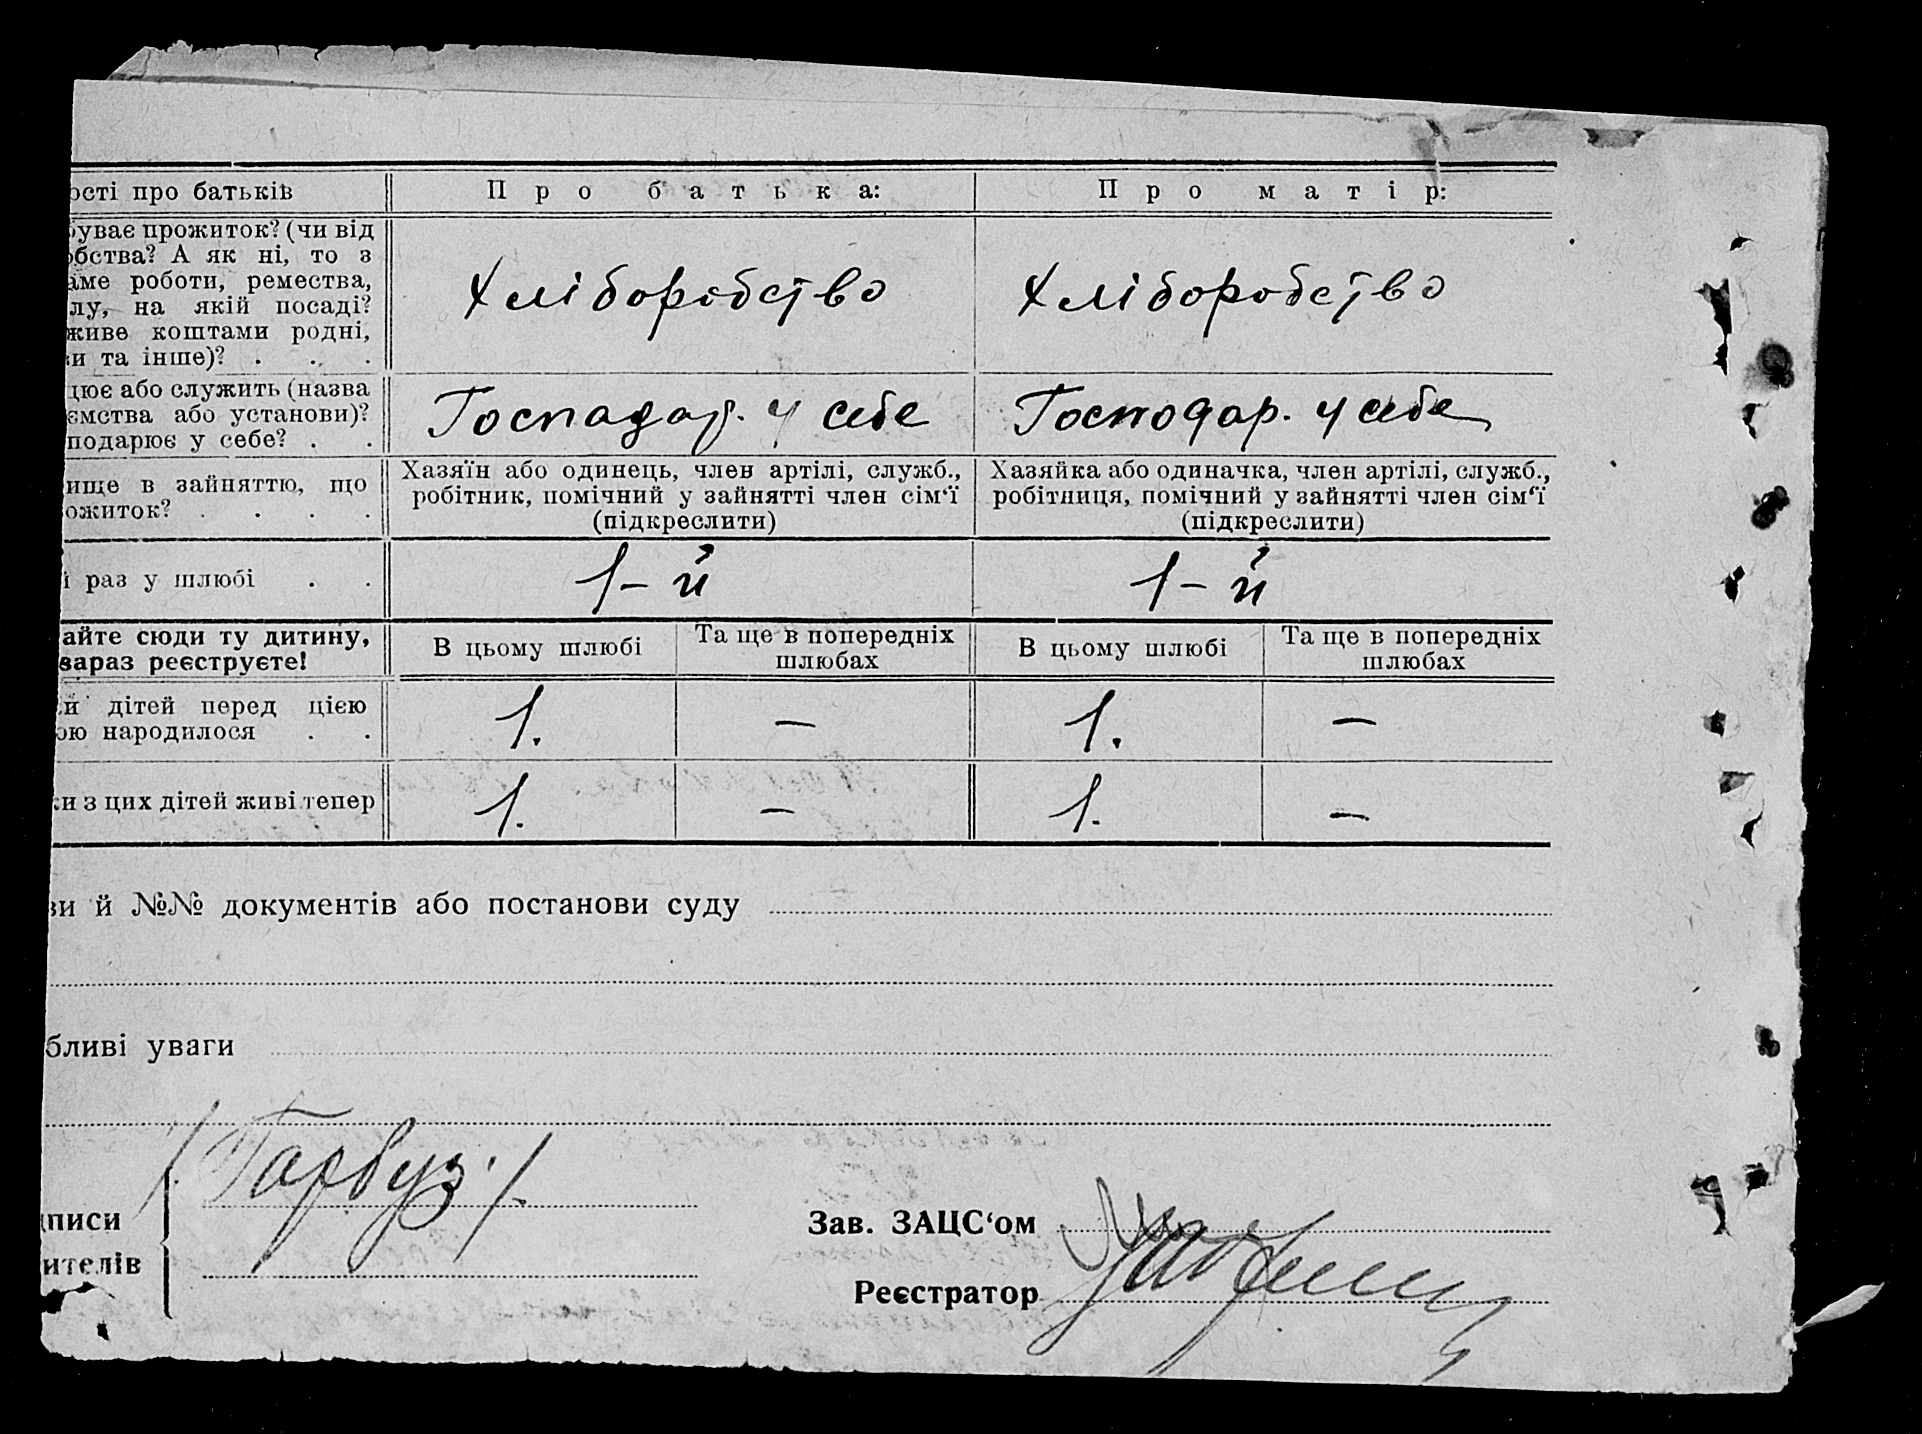 ості про батьків П р о б а т ь к а: П р о м а т і р:
буває прожиток? (чи від
обства? А як ні, то з
аме роботи, ремества,
лу, на якій посаді?
живе коштами родні,
и та інше)? . . .
Хліборобство Хліборобство
цює або служить (назва
ємства або установи)?
подарює у себе? . .
Господар. у себе Господар. у себе
ище в зайняттю, що
ожиток? . . . .
Хазяїн або одинець, член артілі, служб.,
робітник, помічний у зайнятті член сім‘ї
(підкреслити)
Хазяйка або одиначка, член артілі, служб.,
робітниця, помічний у зайнятті член сім‘ї
(підкреслити)
й раз у шлюбі . . 1-й 1-й
айте сюди ту дитину,
зараз реєструєте!
В цьому шлюбі Та ще в попередніх шлюбах В цьому шлюбі Та ще в попередніх шлюбах
ки дітей перед цією
ою народилося . . 1. — 1. —
ки з цих дітей живі тепер 1. — 1. —
ви й №№ документів або постанови суду
бливі уваги
/. Гарбуз. /.
писи
ителів
Зав. ЗАЦС‘ом
Реєстратор